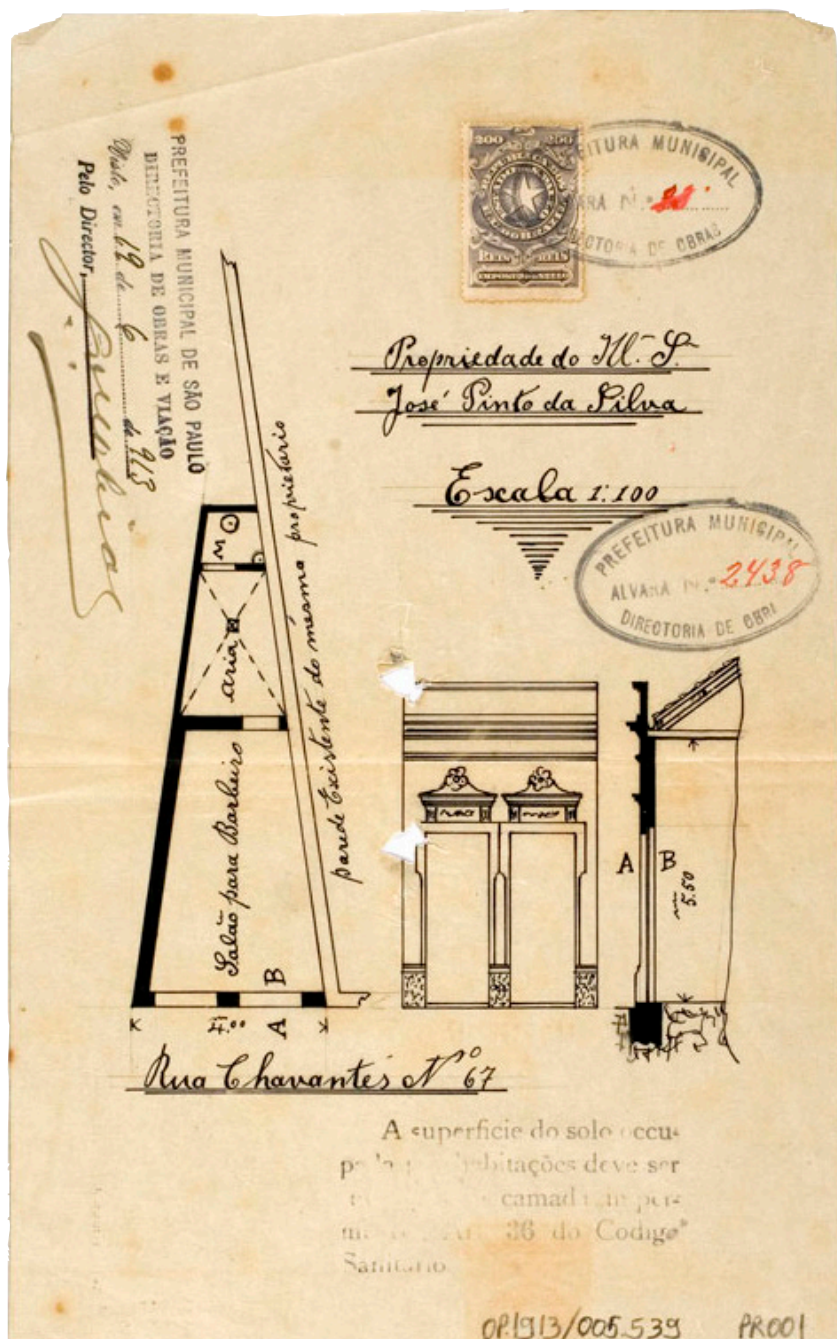 PREFEITURA MUNICIPAL DE SÃO PAULO
DIRECTORIA DE OBRAS E VIAÇÃO
Visto, em 19 de 6 de 913
Pelo Director,
200 200
REIS REIS
EITURA MUNICIPAL
ARA N.º
ECTORIA DE OBRAS
Propriedade do Ill. S.
José Pinto da Silva
Escala 1:100
PREFEITURA MUNICIPAL
ALVARA N.º 2438
DIRECTORIA DE OBRA
parede Existente do mesmo proprietario
aria
Salão para Barbeiro
W
B
A
4.00
A B
5.50
Rua Chavantes Nº 67
A superficie do solo occu-
habitações deve ser
camad per-
36 do Codigo
Sanitario
OP.1913/005.539 PR001